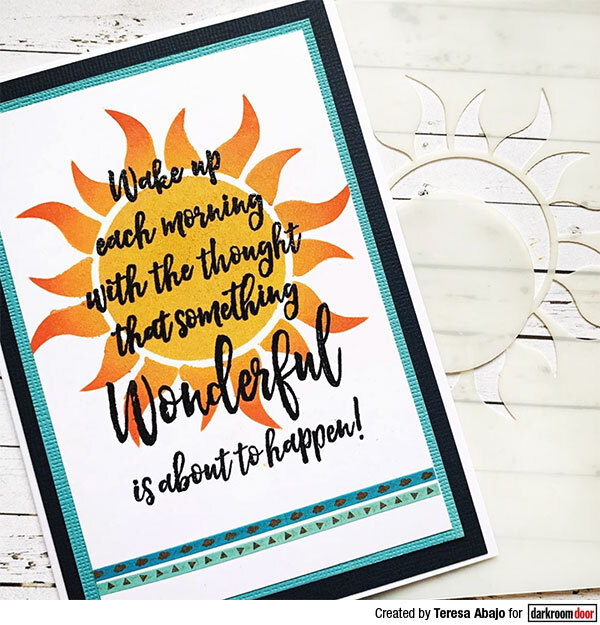 Wake up
each morning
with the thought
that something
Wonderful
is about to happen!
Created by Teresa Abajo for darkroomdoor